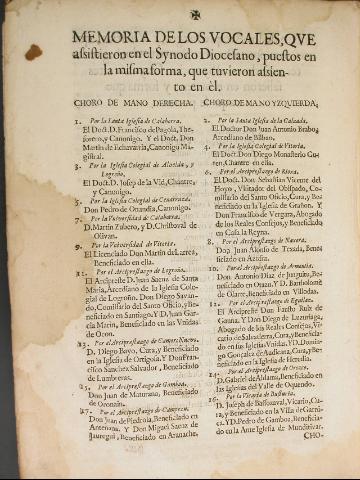 MEMORIA DE LOS VOCALES, QVE
assistieron en el Synodo Diocesano, puestos en
la misma forma, que tuvieron assien-
to en èl.
CHORO DE MANO DERECHA.
1. Por la Santa Iglesia de Calahorra.
El Doct. D. Francisco de Pagola, The-
sorero, y Canonigo. Y el Doct. Don
Martin de Echavarria, Canonigo Ma-
gistral.
3. Por la Iglesia Colegial de Alvelda, y
Logroño.
El Doct. D. Joseph de la Vid, Chantre,
y Canonigo.
5. Por la Iglesia Colegial de Cenarruza.
Don Pedro de Onandia, Canonigo.
7. Por la Vniversidad de Calahorra.
D. Martin Zubero, y D. Christoval de
Olivan.
9. Por la Vniversidad de Vitoria.
El Licenciado Don Martin de Larrea,
Beneficiado en ella.
11. Por el Arciprestazgo de Logroño.
El Arcipreste D. Juan Saenz de Santa
Maria, Arcediano de la Iglesia Cole-
gial de Logroño. Don Diego
Cura, y Bene-
ficiado en Santiago. Y D. Juan Gar-
cia Marin, Beneficiado en las Vnidas
de Oron.
13. Por el Arciprestazgo de Camero Nuevo.
D. Diego Boyo, Cura, y Beneficiado
en la Iglesia de Ortigosa. Y Don Fran-
cisco Sanchez Salvador, Beneficiado
de Lumbreras.
15. Por el Arciprestazgo de Gamboa.
Don Juan de Maturana, Beneficiado
de Oronain.
17. Por el Arciprestazgo de Campezo.
Don Juan de Piedrola, Beneficiado en
Y Don Miguel Saenz de
Jauregui, Beneficiado en Aranache.
CHORO DE MANO YZQVIERDA,
2. Por la Santa Iglesia de la Calzada.
El Doctor Don Juan Antonio Brabo,
Arcediano de Bilbao.
4. Por la Iglesia Colegial de Vitoria.
El Doct. Don Diego Monasterio Gu-
ren, Chantre en ella.
6. Por el Arciprestazgo de Rioxa.
El Doct. Don Sebastian Vicente del
Hoyo, Visitador del Obispado, Co-
missario del Santo Oficio, Cura, y Be-
neficiado en la Iglesia de Grañon. Y
Don Francisco de Vergara, Abogado
de los Reales Consejos, y Beneficiado
en Casa la Reyna.
8. Por el Arciprestazgo de Naxera.
Don Juan Alonso de Texada, Bene-
ficiado en Azofra.
10. Por el Arciprestazgo de Armentia.
Don Antonio Diaz de Junguitu, Be-
neficiado en Otaza. Y D. Bartholomè
de Olarte, Beneficiado en Villodas.
12. Por el Arciprestazgo de Eguilaz.
El Arcipreste Don Fausto Ruiz de
Gauna, Y Don Diego de Luzuriaga,
Abogado de los Reales Consejos, Vi-
cario de Salvatierra, Cura, y Beneficia-
do en las Iglesias Vnidas. Y D. Domin-
go Gonçalez de Audicana, Cura, y Be-
neficiado en la Iglesia de Heredia.
14. Por el Arciprestazgo de Orozco.
D. Gabriel de Aldama, Beneficiado en
las Iglesias del Valle de Oquendo.
16. Por la Vicaria de Busturia.
D. Joseph de Bassozaval, Vicario, Cu-
ra, y Beneficiado en la Villa de Garni-
ca. Y D. Pedro de Gamboa, Beneficia-
do en la Ante Iglesia de Mundivar.
CHO-